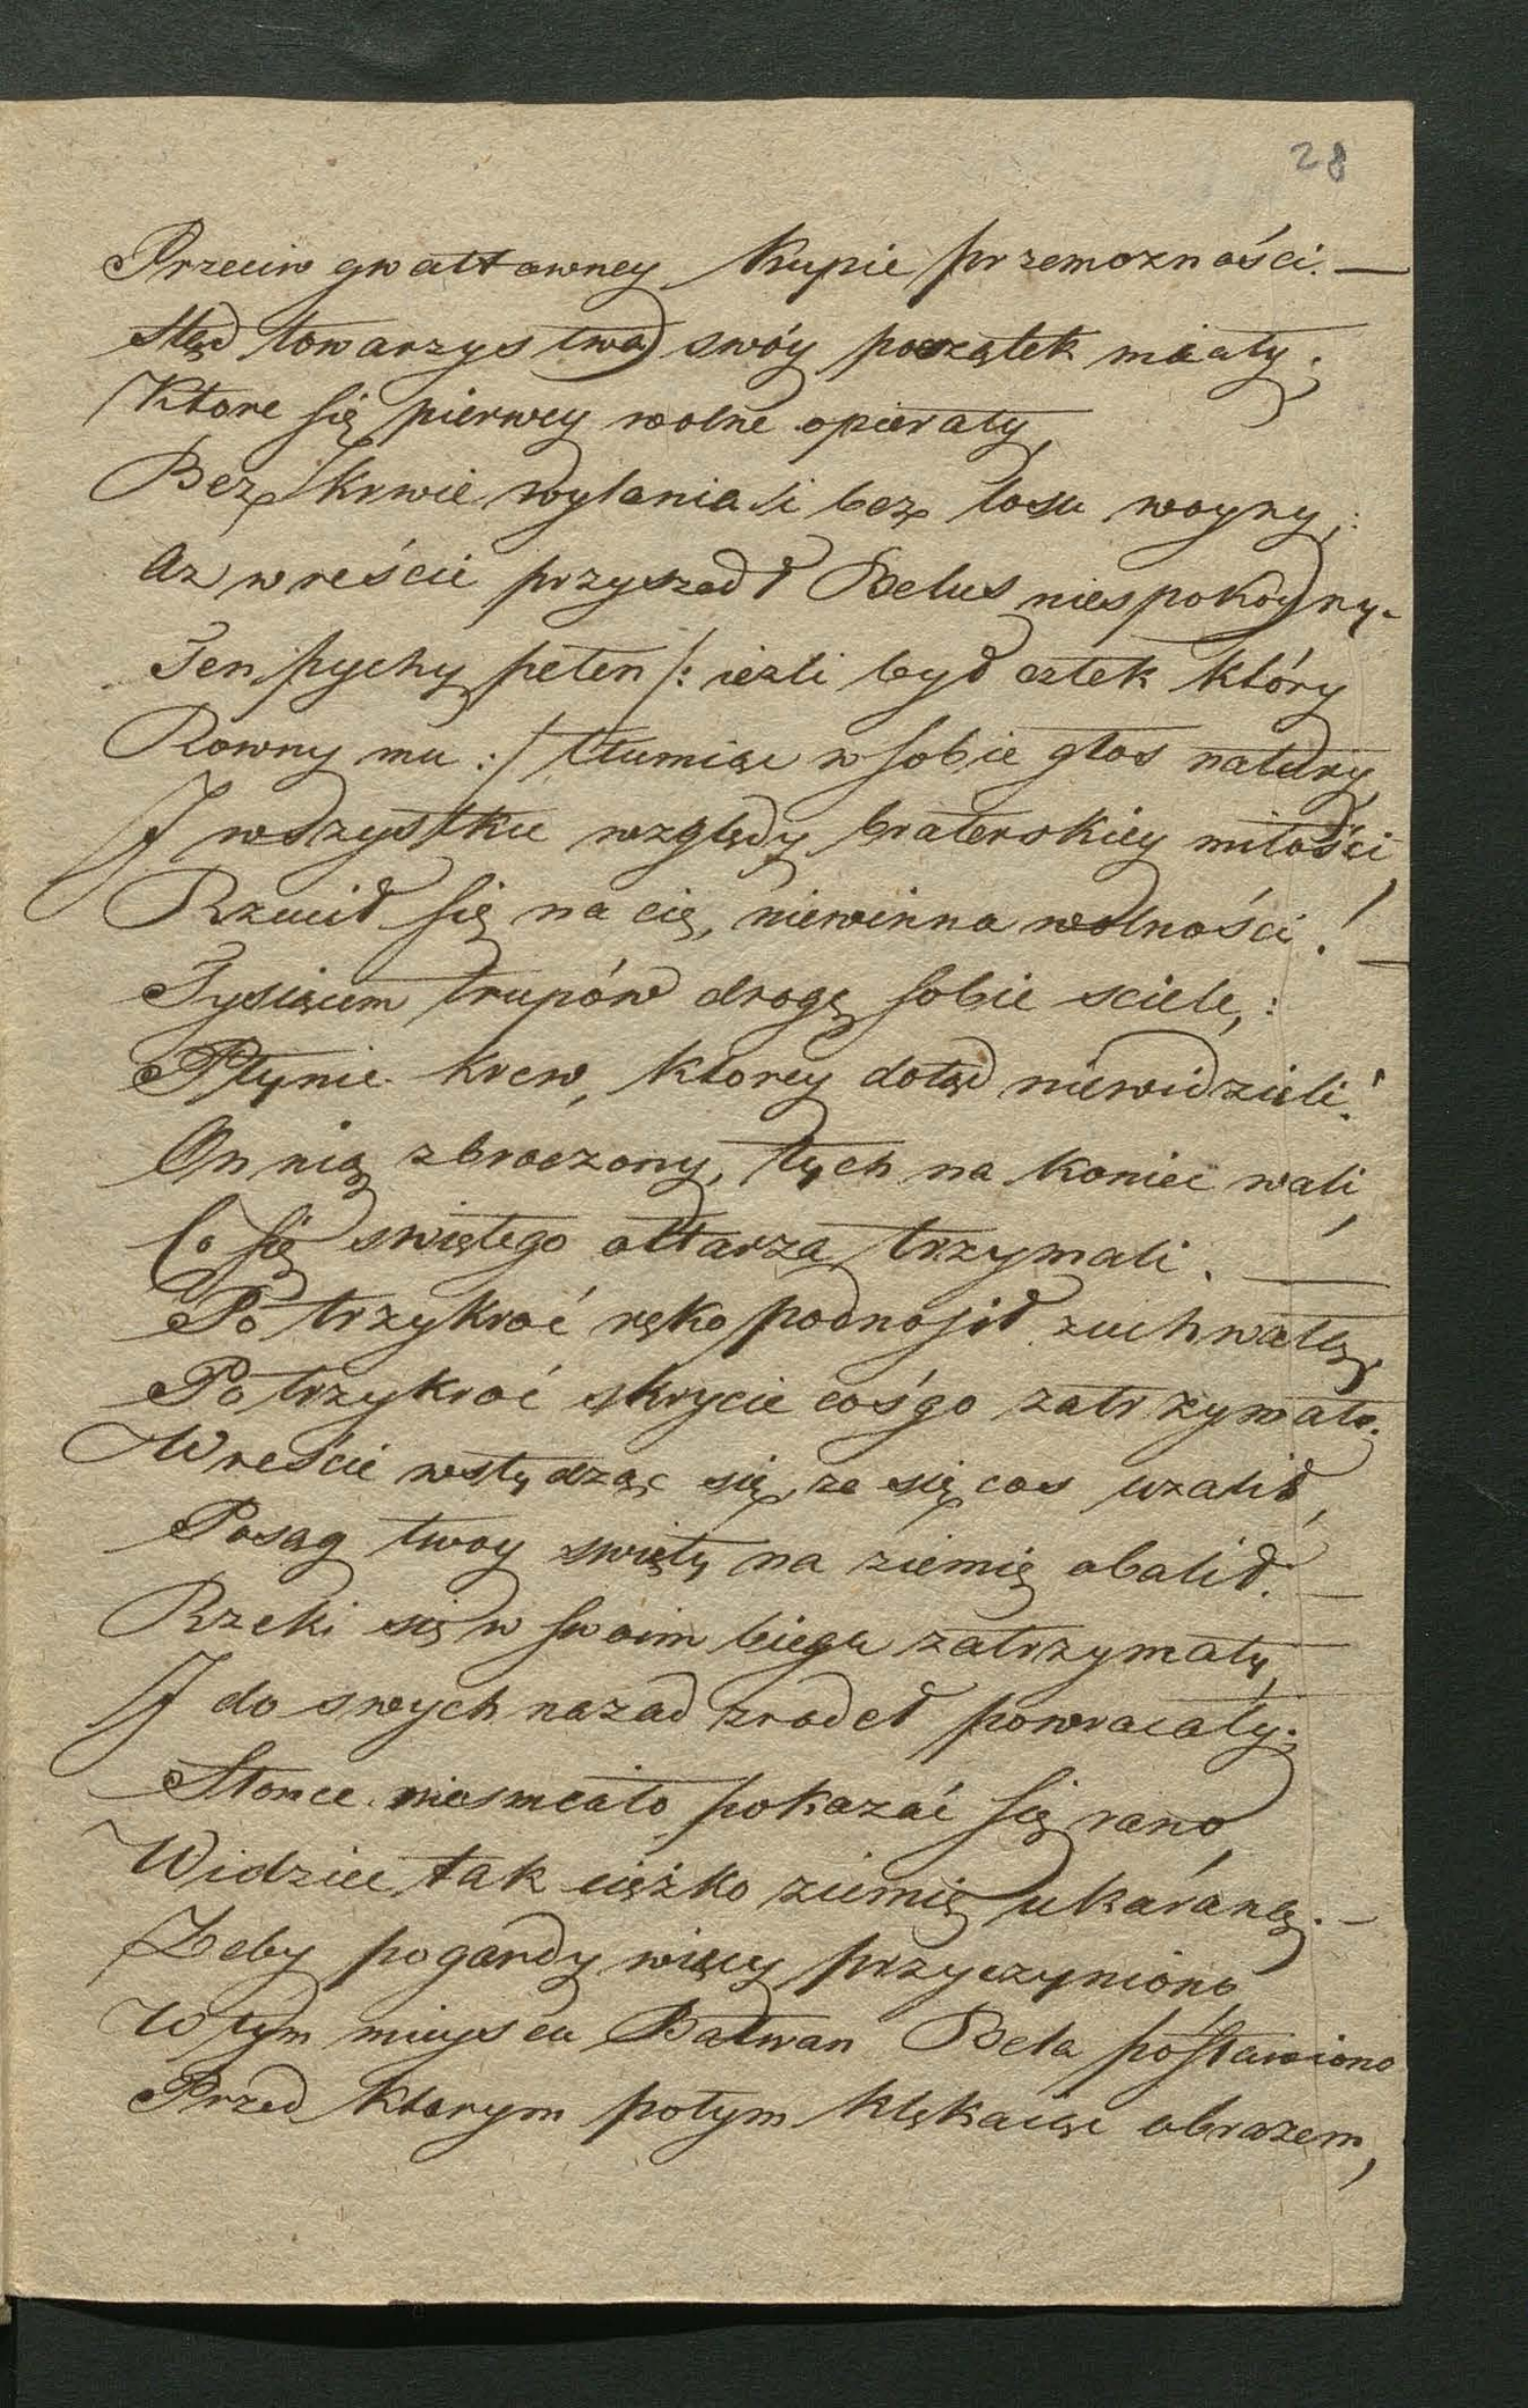 28
Przeciw gwałtowney kupie przemożności. —
Stąd towarzystwa swóy początek miały;
Ktore się pierwey wolne opierały,
Bez krwie wylania i bez losu woyny;
Az wreście przyszedł Belus niespokoyny.
Ten pychy peten /: iezli był człek który
Rowny mu :/ tłumiąc w sobie głos natury,
J wszystkie względy braterskiey miłości,
Rzucił się na cię, niewinna wolności! —
Tysiącem trupów drogę sobie sciele,:
Płynie krew, ktorey dotąd niewidzieli!
On nią zbroczony, tych na koniec wali,
Co się swiętego ołtarza trzymali. —
Po trzykroć ręko podnosił zuchwałą,
Po trzykroć skrycie coś go zatrzymało.
Wreście wstydząc się, ze się cos uzalił,
Posag twoy swięty na ziemię obalił. —
Rzeki się w swoim biegu zatrzymały,
J do swych nazad zrodeł powracały;
Słonce niesmeało pokazać się rano,
Widzieć tak cięźko ziemię ukáráną. —
Zeby pogardy więcy przyczyniono,
W tym mieyscu Bałwan Bela postawiono
Przed ktorym potym klękaiąc obrazem,